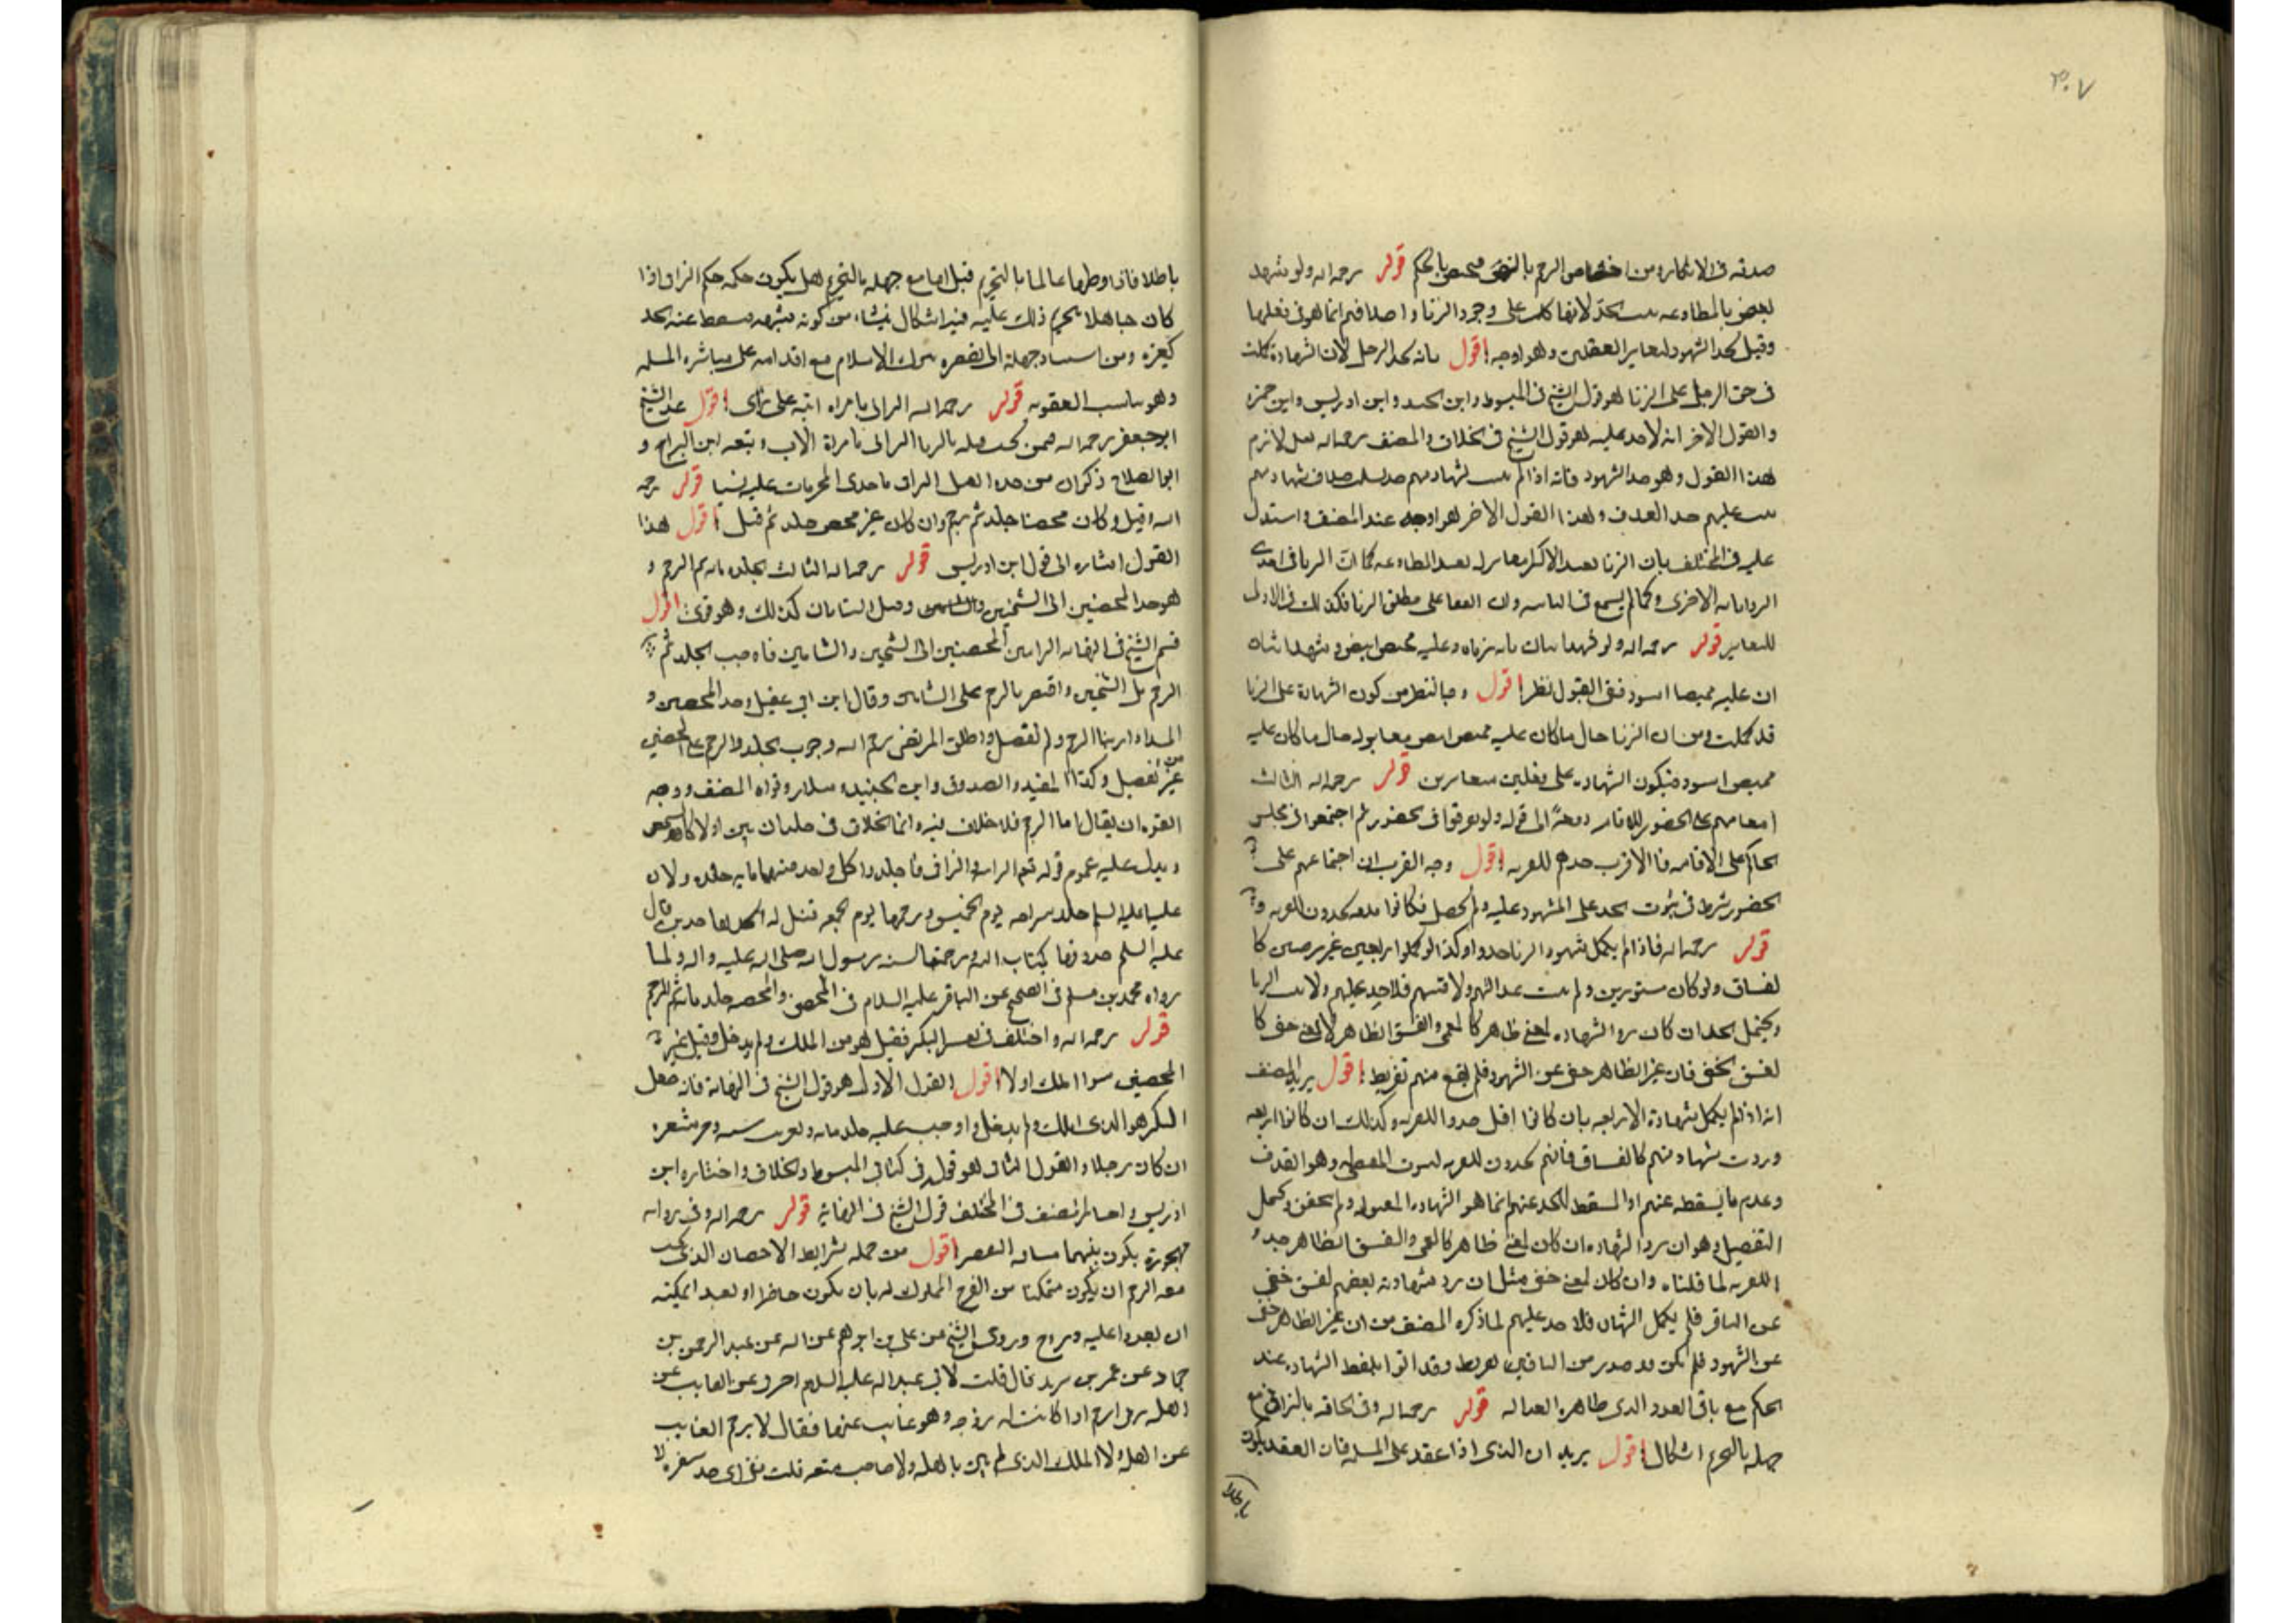 ٣٠٧
صدقه فى الاكثار ومن اختصاص الرجم بالزنى فيختص بالحكم قوله رحمه الله ولو شهد
بعض بالمطاوعه ثبت الحد لاتفاق كلهم على وجود الزنا واختلافهم انما هو فى فعلها
وقيل يحد الشهود لتغاير الفعلين وهو اوجه اقول بانه يحد الرجل لان الشهادة كملت
فى حق الرجل على الزنا هو قول الشيخ فى المبسوط وابن الجنيد وابن ادريس وابن حمزه
والقول الاخر انه لا حد عليه هو قول الشيخ فى الخلاف والمصنف رحمه الله نقل لازم
هذا القول وهو حد الشهود فانه اذا لم يثبت
عليهم حد القذف وهذا القول الاخر هو اوجه عند المصنف واستدل
عليه فى المختلف بان الزنا بقيد الاكراه مغاير له بقيد المطاوعه
للتغاير قوله رحمه الله ولو شهد اثنان بانه زنا وعليه قميص ابيض وشهد اثنان
ان عليه قميصا اسود ففى القبول نظر اقول وجه النظر من كون الشهادة على الزنا
قد كملت ومن ان الزنا حال ما كان عليه قميص ابيض مغاير له حال ما كان عليه
قميص اسود فيكون الشهادة على فعلين متغايرين قوله رحمه الله الثالث
اتفاقهم على الحضور للاقامه دفعة الى قوله ولو تفرقوا فى الحضور ثم اجتمعوا فى مجلس
الحاكم على الاقامه فالاقرب حدهم للفريه اقول وجه القرب ان اجتماعهم على
الحضور شرط فى ثبوت الحد على المشهود عليه ولم يحصل فكانوا قذفه يحدون للفريه
قوله رحمه الله فاذا لم يكمل شهود الزنا حدوا وكذا لو كملوا اربعه غير مرضيين كا
لفساق ولو كان مستورين ولم تثبت عدالتهم ولا فسقهم فلا حد عليهم ولا يثبت الزنا
ويحتمل الحد ان كان رد الشهاده لمعنى ظاهر كالعمى والفسق الظاهر لا لمعنى خفى كا
لفسق الخفى فان غير الظاهر خفى عن الشهود فلم يقع منهم تفريط اقول يريد المصنف
انه اذا لم يكمل شهادة الاربعه بان كانوا اقل حدوا للفريه وكذلك ان كانوا اربعه
وردت شهادتهم كالفساق فانهم يحدون للفريه لثبوت المقتضى وهو القذف
وعدم ما يسقطه عنهم اذ المسقط للحد عنهم انما هو الشهاده المقبوله ولم يتحقق ويحتمل
التفصيل وهو ان رد الشهاده ان كان لمعنى ظاهر كالعمى والفسق الظاهر حدوا
للفريه لما قلناه وان كان لمعنى خفى مثل ان رد شهادة بعضهم لفسق خفى
عن الباقى فلم يكمل الشهادة فلا حد عليهم لما ذكره المصنف من ان غير الظاهر خفى
عن الشهود فلم يكن قد صدر من الباقين تفريط وقد اتوا بلفظ الشهاده عند
الحاكم مع باقى العدد الذى ظاهره العداله قوله رحمه الله وفى الحاقه بالزانى مع
جهله بالتحريم اشكال اقول يريد ان الذمى اذا عقد على المسلمه فان العقد يكون
باطلا
باطلا فاذا وطئها عالما بالتحريم قتل اما مع جهله بالتحريم هل يكون حكمه حكم الزانى اذا
كان جاهلا بتحريم ذلك عليه فيه اشكال ينشاء من كونه شبهه فسقط عنه الحد
كغيره ومن استناد جهله الى تقصيره بترك الاسلام مع اقدامه على مباشره المسلمه
وهو يناسب العقوبه قوله رحمه الله الزانى بامراه ابيه على راى اقول عد الشيخ
ابو جعفر رحمه الله فيمن يجب قتله بالزنا الزانى بامراة الاب وتبعه ابن البراج و
ابو الصلاح وابن ادريس قوله رحمه
الله وقيل وكان محصنا جلد ثم رجم وان كان غير محصن جلد ثم قتل اقول هذا
القول اشاره الى قول ابن ادريس قوله رحمه الله الثالث الجلد مائه ثم الرجم و
هو حد المحصنين اذا كانا الشيخين وقيل الشابان كذلك وهو قوى اقول
قسم الشيخ فى النهايه الزانيين المحصنين الى الشيخين والشابين فاوجب الجلد ثم
الرجم على الشيخين واقتصر بالرجم على الشابين وقال ابن ابى عقيل وحد المحصن و
المحصنه اذا زنيا الرجم ولم يفصل واطلق المرتضى رحمه الله وجوب الجلد والرجم على المحصن
من غير تفصيل وكذا المفيد والصدوق وابن الجنيد وسلار وقواه المصنف ووجه
القوه ان يقال اما الرجم فلا خلاف فيه وانما الخلاف فى جلدهما
ويدل عليه عموم قوله تعالى الزانية والزانى فاجلدوا كل واحد منهما مايه جلده ولان
عليا عليه السلام جلد سراحه يوم الخميس ورجمها يوم الجمعه فقيل له اتحدها حدين قال
عليه السلام حددتها بكتاب الله ورجمتها بسنه رسول الله صلى الله عليه واله ولما
رواه محمد بن مسلم فى الصحيح عن الباقر عليه السلام فى المحصن والمحصنه جلد مائه ثم الرجم
قوله رحمه الله واختلف فى تفسير البكر فقيل هو من املك ولم يدخل وقيل غير
المحصن سواء املك او لا اقول القول الاول هو قول الشيخ فى النهاية فانه جعل
البكر هو الذى املك ولم يدخل واوجب عليه جلد مائه وتغريب سنه وجز شعره
ان كان رجلا والقول الثانى هو قوله فى كتابى المبسوط والخلاف واختاره ابن
ادريس واختار المصنف فى المختلف قول الشيخ فى النهاية قوله رحمه الله وفى روايه
مهجورة يكون بينهما مسافه القصر اقول من جمله شرايط الاحصان الذى يجب
معه الرجم ان يكون متمكنا من الفرج المملوك له بان يكون حاضرا او بعيدا يمكنه
ان يغدوا عليه ويراح وروى الشيخ عن على بن ابراهيم عن ابيه عن عبد الرحمن بن
حماد عن عمر بن يزيد قال قلت لابى عبد الله عليه السلام اخبرنى عن الغايب عن
اهله يزنى هل يرجم اذا كانت له زوجه وهو غايب عنها فقال لا يرجم الغايب
عن اهله ولا المملك الذى لم يبن باهله ولا صاحب متعه قلت ففى اى حد سفره لا